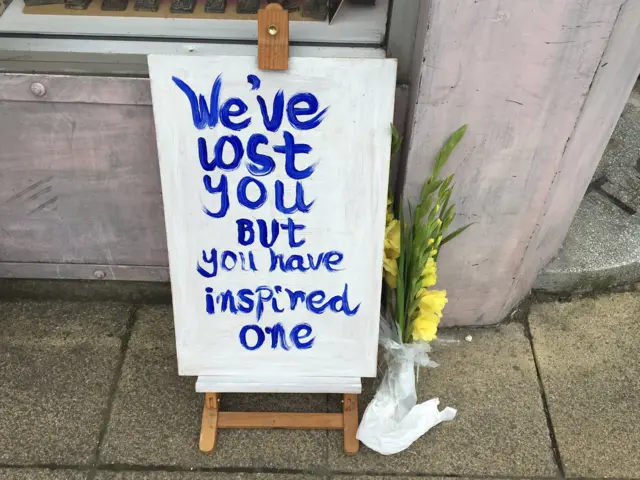 We've
lost
you
BUT
you have
inspired
one